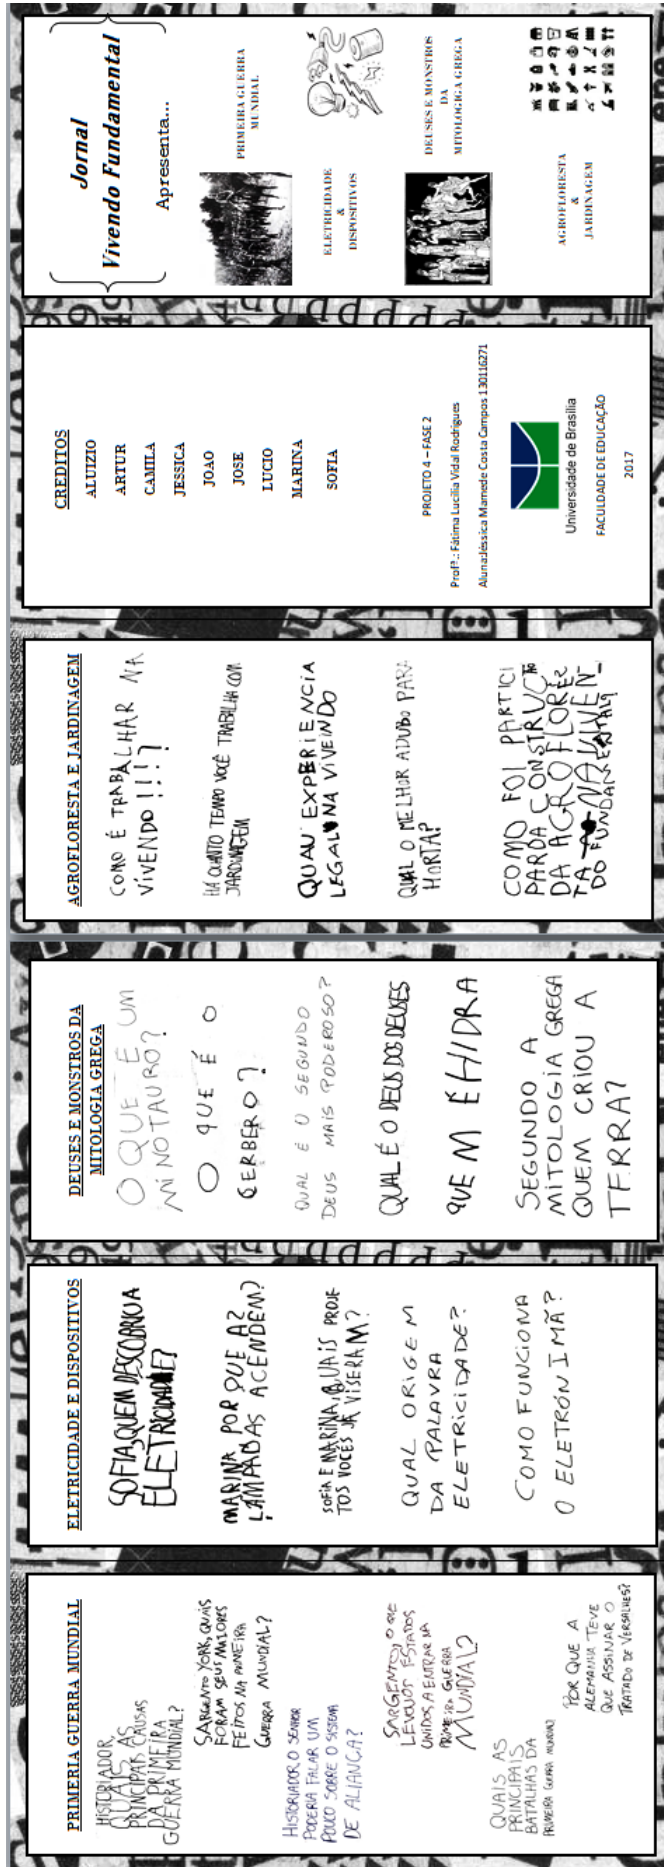 Jornal
Vivendo Fundamental
Apresenta...
PRIMEIRA GUERRA
MUNDIAL
ELETRICIDADE
&
DISPOSITIVOS
DEUSES E MONSTROS
DA
MITOLOGIGA GREGA
AGROFLORESTA
&
JARDINAGEM
CREDITOS
ALUIZIO
ARTUR
CAMILA
JESSICA
JOAO
JOSE
LUCIO
MARINA
SOFIA
PROJETO 4 – FASE 2
Profª.: Fátima Lucilia Vidal Rodrigues
Aluna:Jéssica Mamede Costa Campos 130116271
Universidade de Brasília
FACULDADE DE EDUCAÇÃO
2017
AGROFLORESTA E JARDINAGEM
COMO É TRABALHAR NA
VIVENDO!!!?
HÁ QUANTO TEMPO VOCÊ TRABALHA COM
JARDINAGEM
QUAU EXPERIENCIA
LEGAL NA VIVEINDO
QUAL O MELHOR ADUBO PARA
HORTA?
COMO FOI PARTICI
PARDA CONSTRUÇÃO
DA AGROFLORES
TA NA VIVEN_
DO FUNDAMENTAL?
DEUSES E MONSTROS DA
MITOLOGIA GREGA
O QUE É UM
MINOTAURO?
O QUE É O
CERBERO?
QUAL É O SEGUNDO
DEUS MAIS PODEROSO?
QUAL É O DEUS DOS DEUSES
QUEM É HIDRA
SEGUNDO A
MITOLOGIA GREGA
QUEM CRIOU A
TERRA?
ELETRICIDADE E DISPOSITIVOS
SOFIA, QUEM DESCOBRIU A
ELETRICIDADE?
MARINA POR QUE AZ
LÂMPADAS ACENDEM?
SOFIA E MARINA, QUAIS PROJE
TOS VOCES JA VISERAM?
QUAL ORIGEM
DA PALAVRA
ELETRICIDADE?
COMO FUNCIONA
O ELETRÓNIMÃ?
PRIMERIA GUERRA MUNDIAL
HISTORIADOR,
QUAIS AS
PRINCIPAIS CAUSAS
DA PRIMEIRA
GUERRA MUNDIAL?
SARGENTO YORK, QUAIS
FORAM SEUS MAIORES
FEITOS NA PRIMEIRA
GUERRA MUNDIAL?
HISTORIADOR O SENHOR
PODERIA FALAR UM
POUCO SOBRE O SISTEMA
DE ALIANÇA?
SARGENTO, O QUE
LEVOU OS ESTADOS
UNIDOS A ENTRAR NA
PRIMEIRA GUERRA
MUNDIAL?
QUAIS AS
PRINCIPAIS
BATALHAS DA
PRIMEIRA GUERRA MUNDIAL?
POR QUE A
ALEMANHA TEVE
QUE ASSINAR O
TRATADO DE VERSALHES?